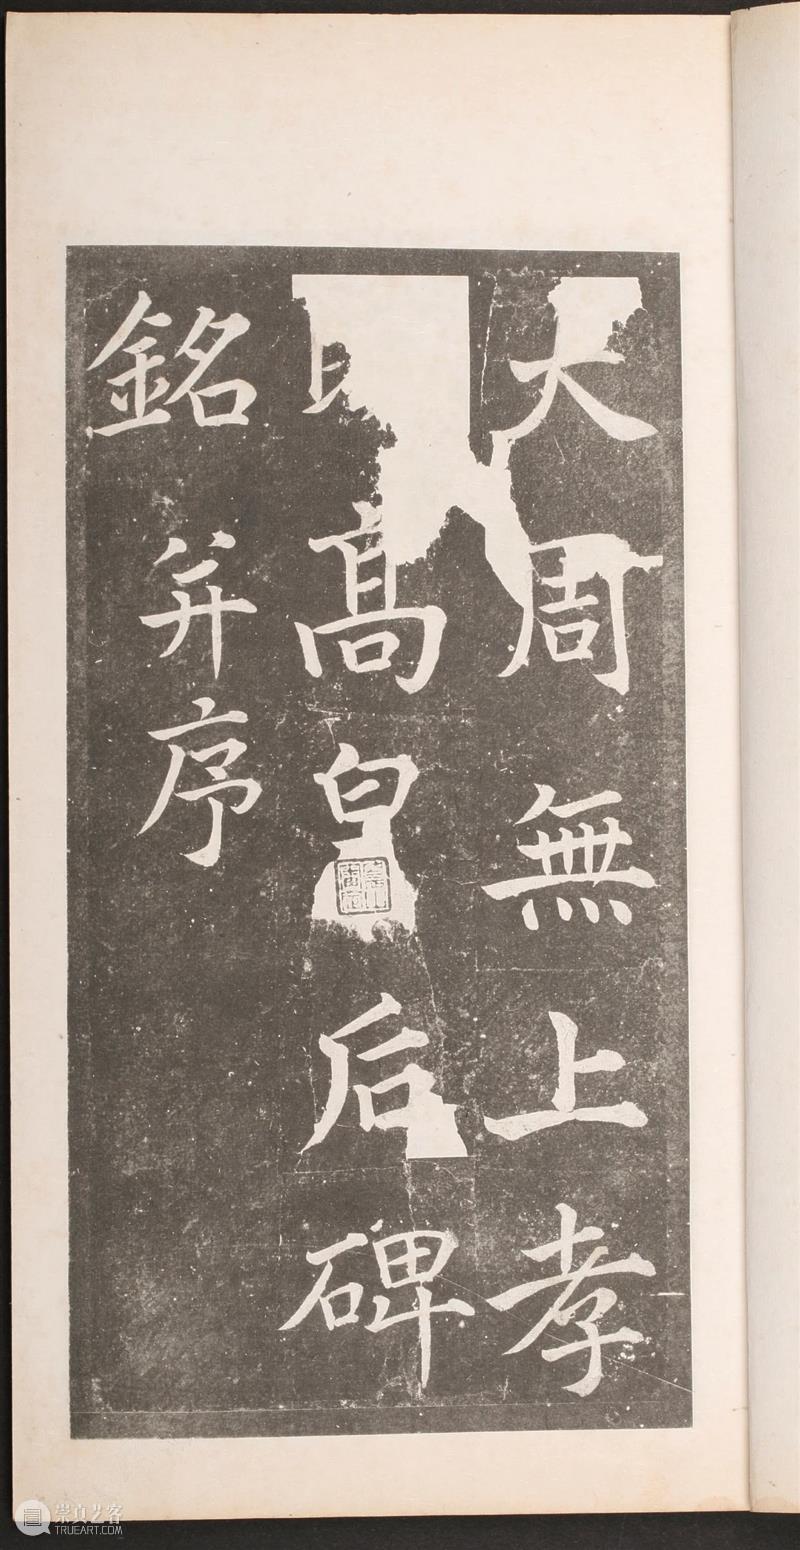 大周無上孝
高皇后碑
銘并序
崇真艺客
TRUEART.COM